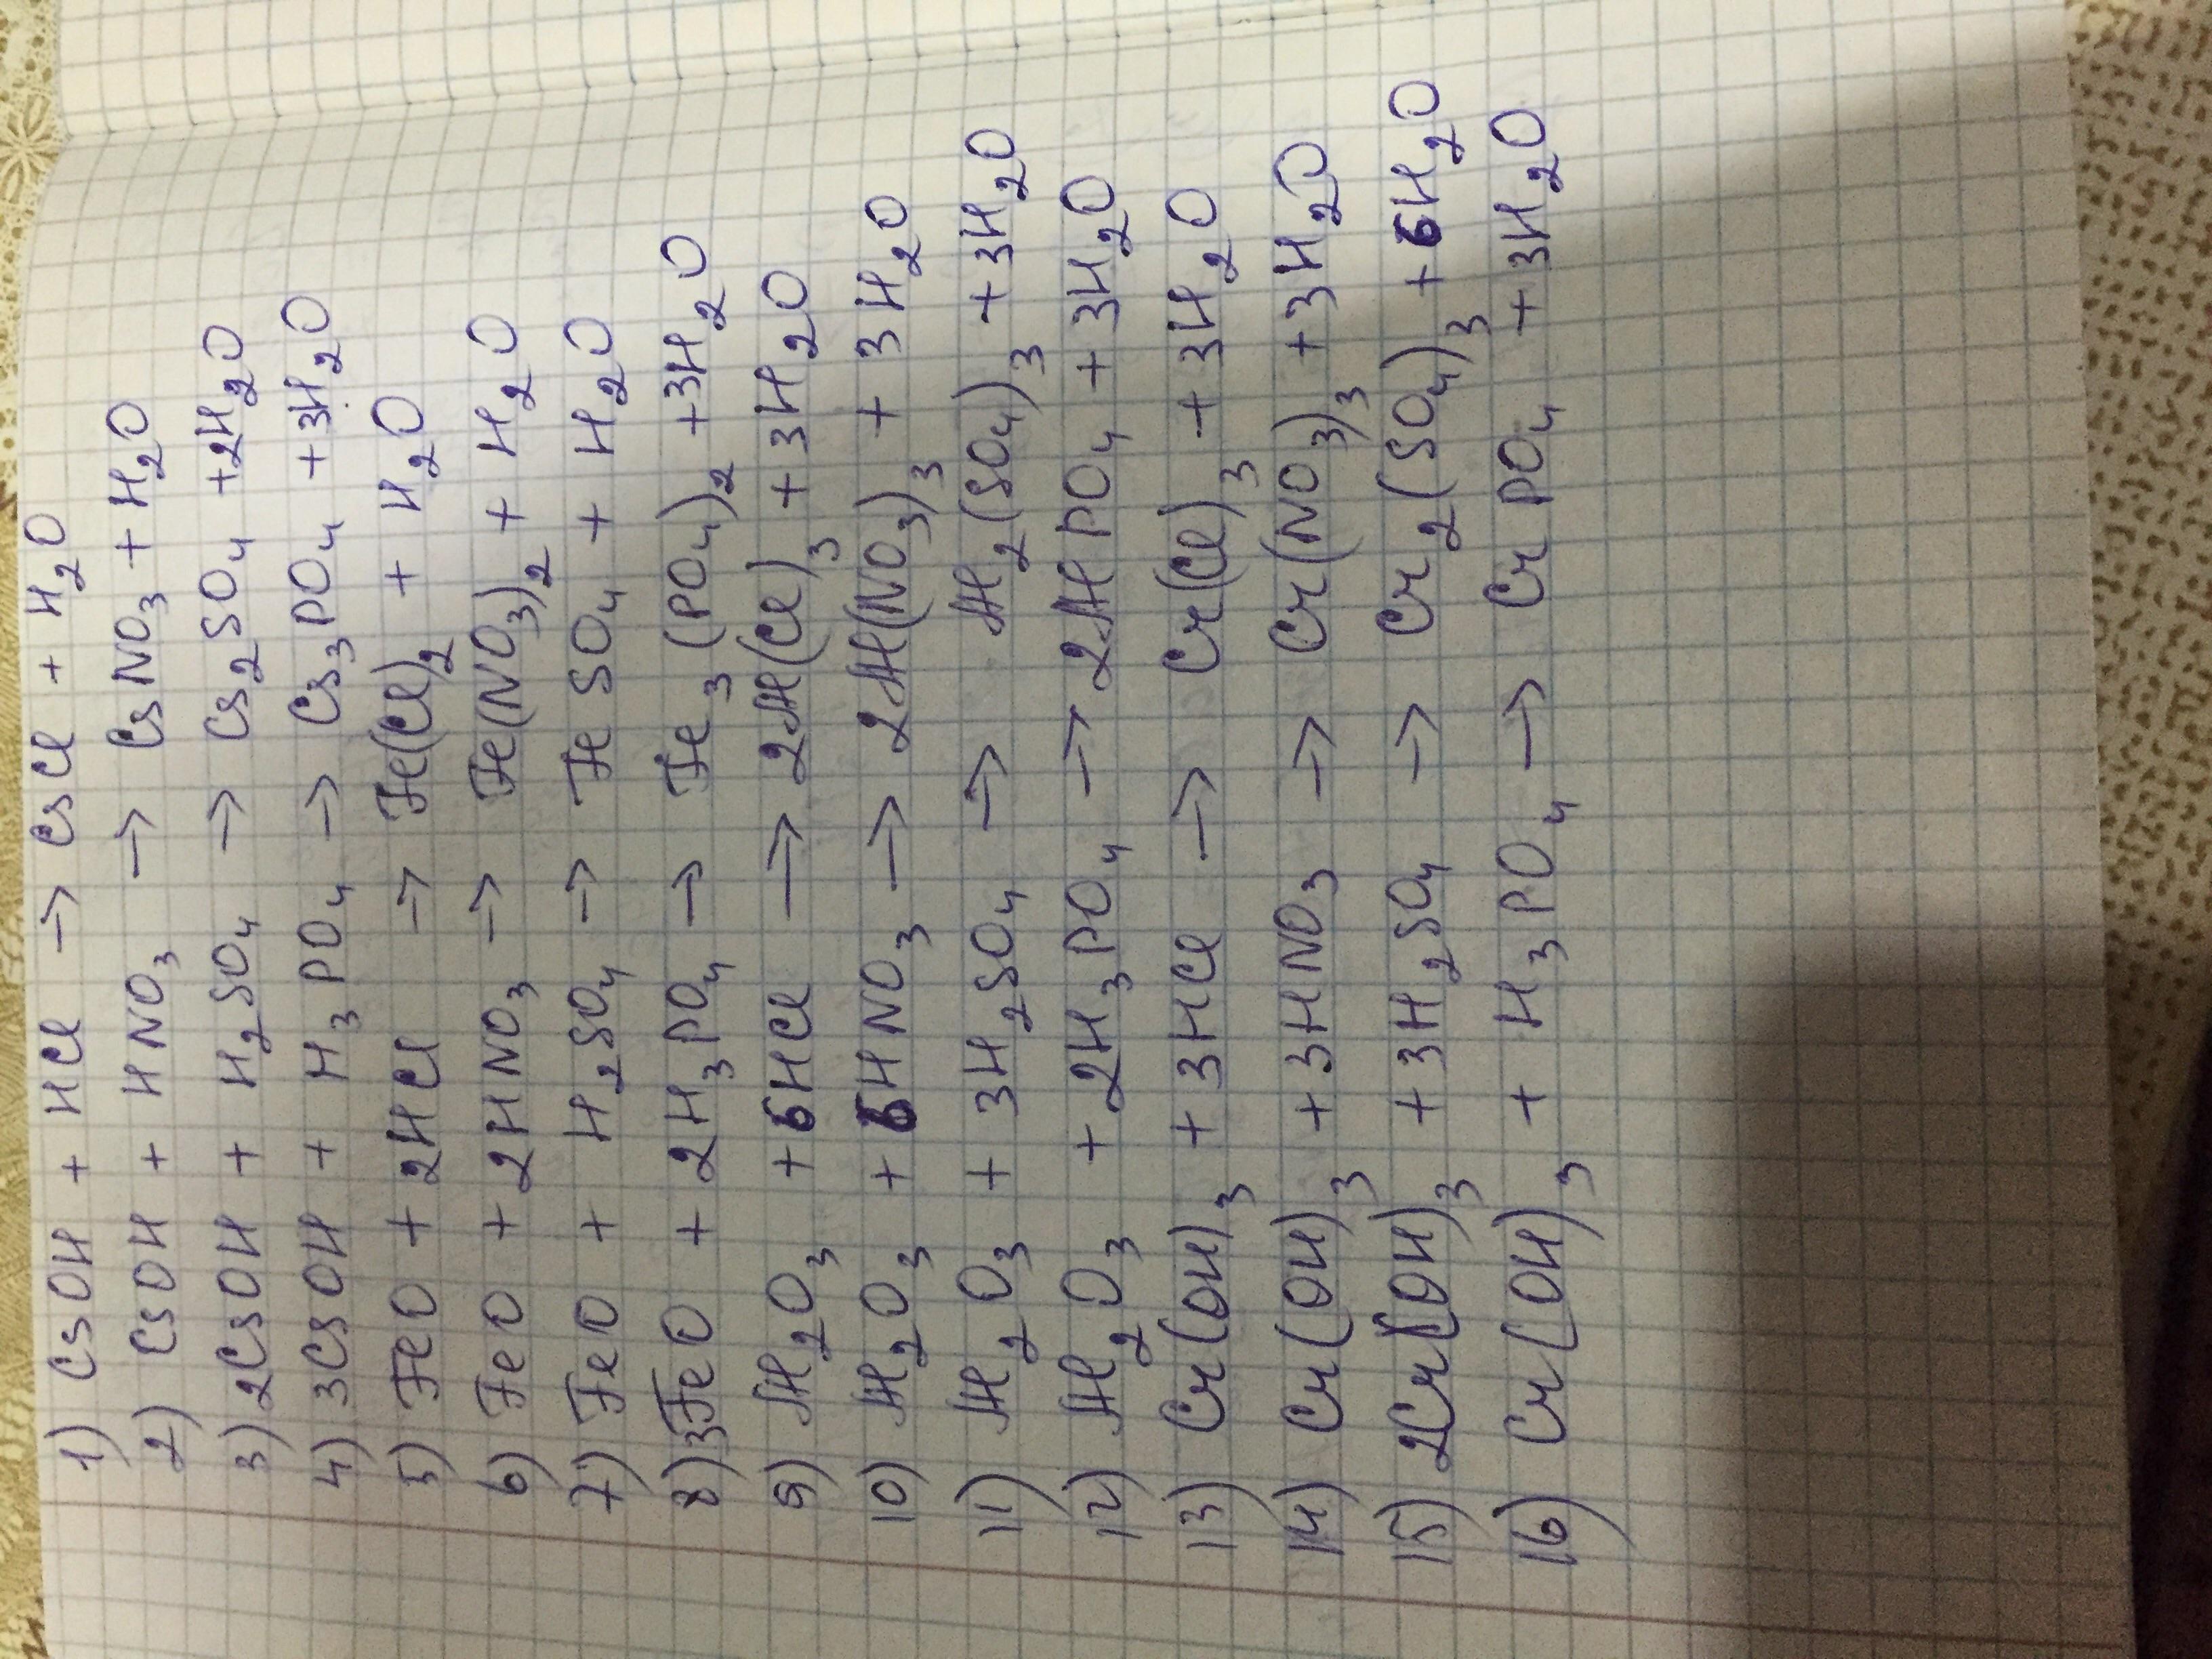 1) CsOH + HCl → CsCl + H₂O
2) CsOH + HNO₃ → CsNO₃ + H₂O
3) 2CsOH + H₂SO₄ → Cs₂SO₄ + 2H₂O
4) 3CsOH + H₃PO₄ → Cs₃PO₄ + 3H₂O
5) FeO + 2HCl → Fe(Cl)₂ + H₂O
6) FeO + 2HNO₃ → Fe(NO₃)₂ + H₂O
7) FeO + H₂SO₄ → FeSO₄ + H₂O
8) 3FeO + 2H₃PO₄ → Fe₃(PO₄)₂ + 3H₂O
9) Al₂O₃ + 6HCl → 2Al(Cl)₃ + 3H₂O
10) Al₂O₃ + 6HNO₃ → 2Al(NO₃)₃ + 3H₂O
11) Al₂O₃ + 3H₂SO₄ → Al₂(SO₄)₃ + 3H₂O
12) Al₂O₃ + 2H₃PO₄ → 2AlPO₄ + 3H₂O
13) Cr(OH)₃ + 3HCl → Cr(Cl)₃ + 3H₂O
14) Cr(OH)₃ + 3HNO₃ → Cr(NO₃)₃ + 3H₂O
15) 2Cr(OH)₃ + 3H₂SO₄ → Cr₂(SO₄)₃ + 6H₂O
16) Cr(OH)₃ + H₃PO₄ → CrPO₄ + 3H₂O